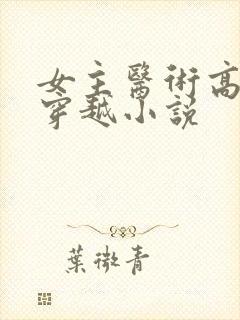 女主醫術高
穿越小説
葉微青